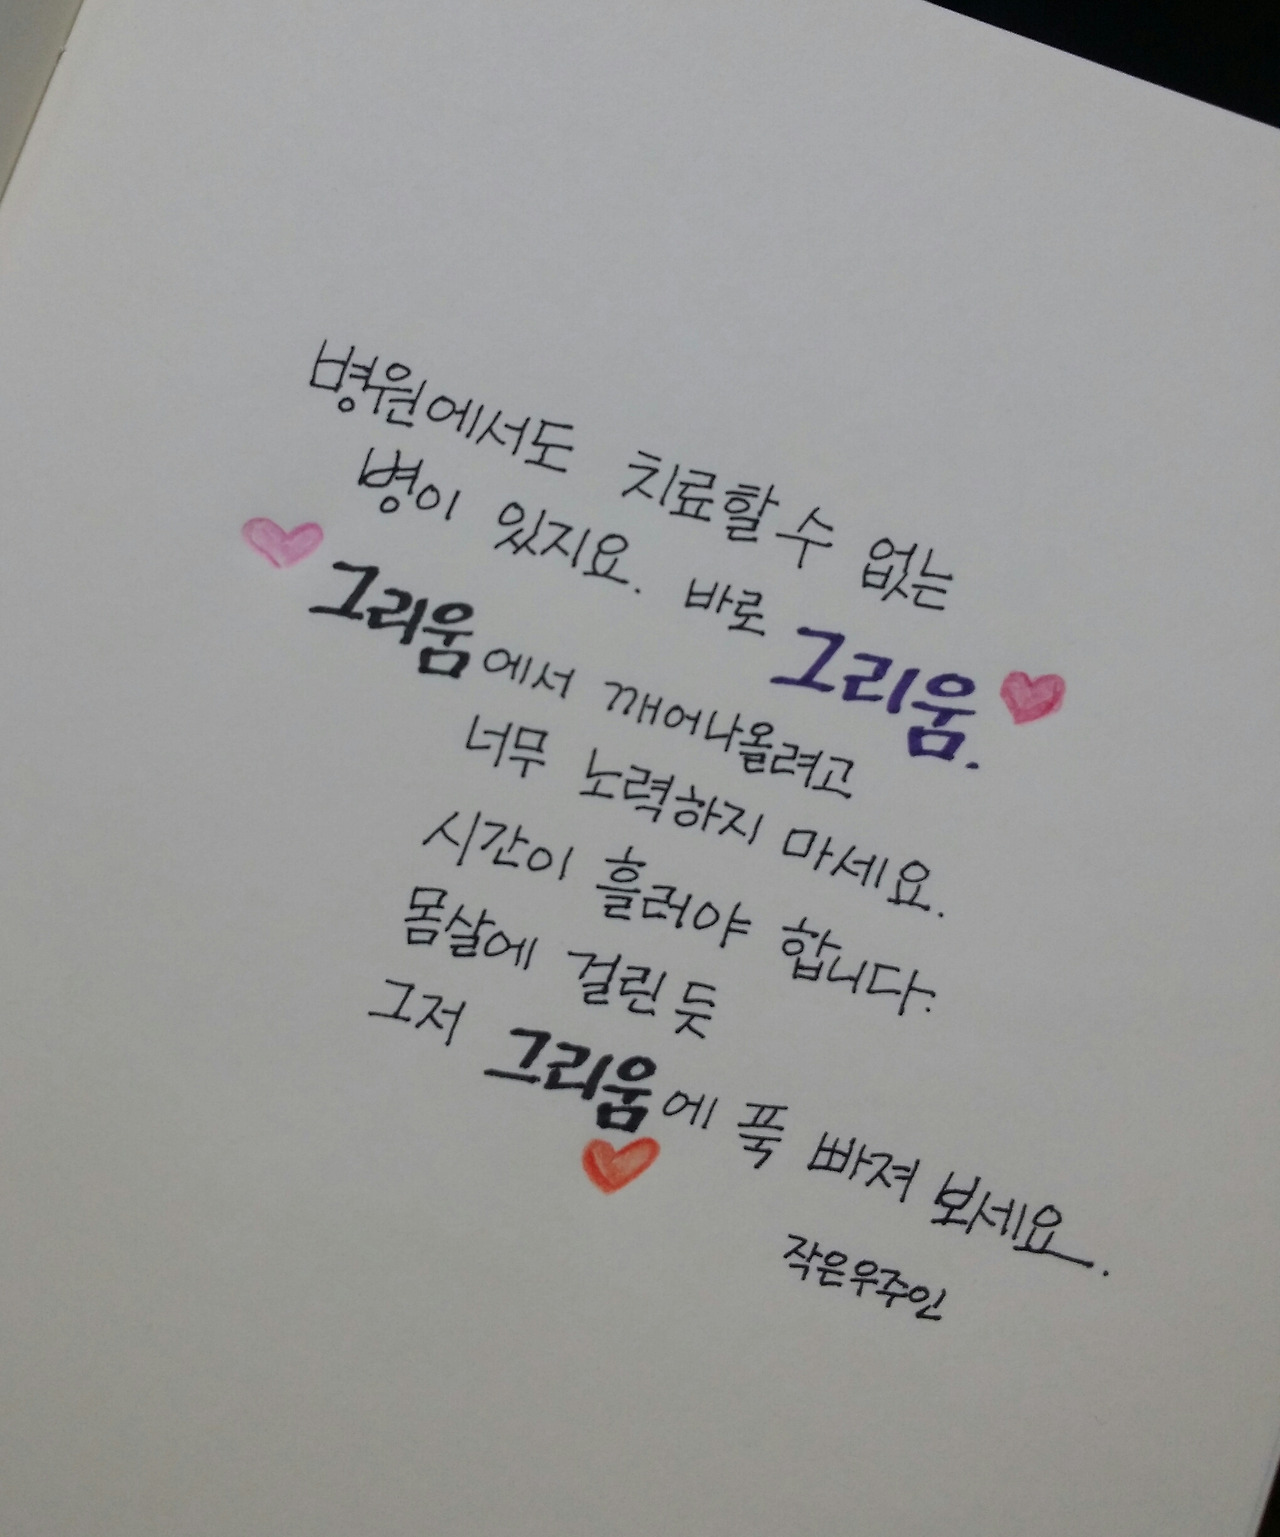 병원에서도 치료할 수 없는
병이 있지요. 바로 그리움.
그리움에서 깨어나올려고
너무 노력하지 마세요.
시간이 흘러야 합니다.
몸살에 걸린 듯
그저 그리움에 푹 빠져 보세요.
작은우주인